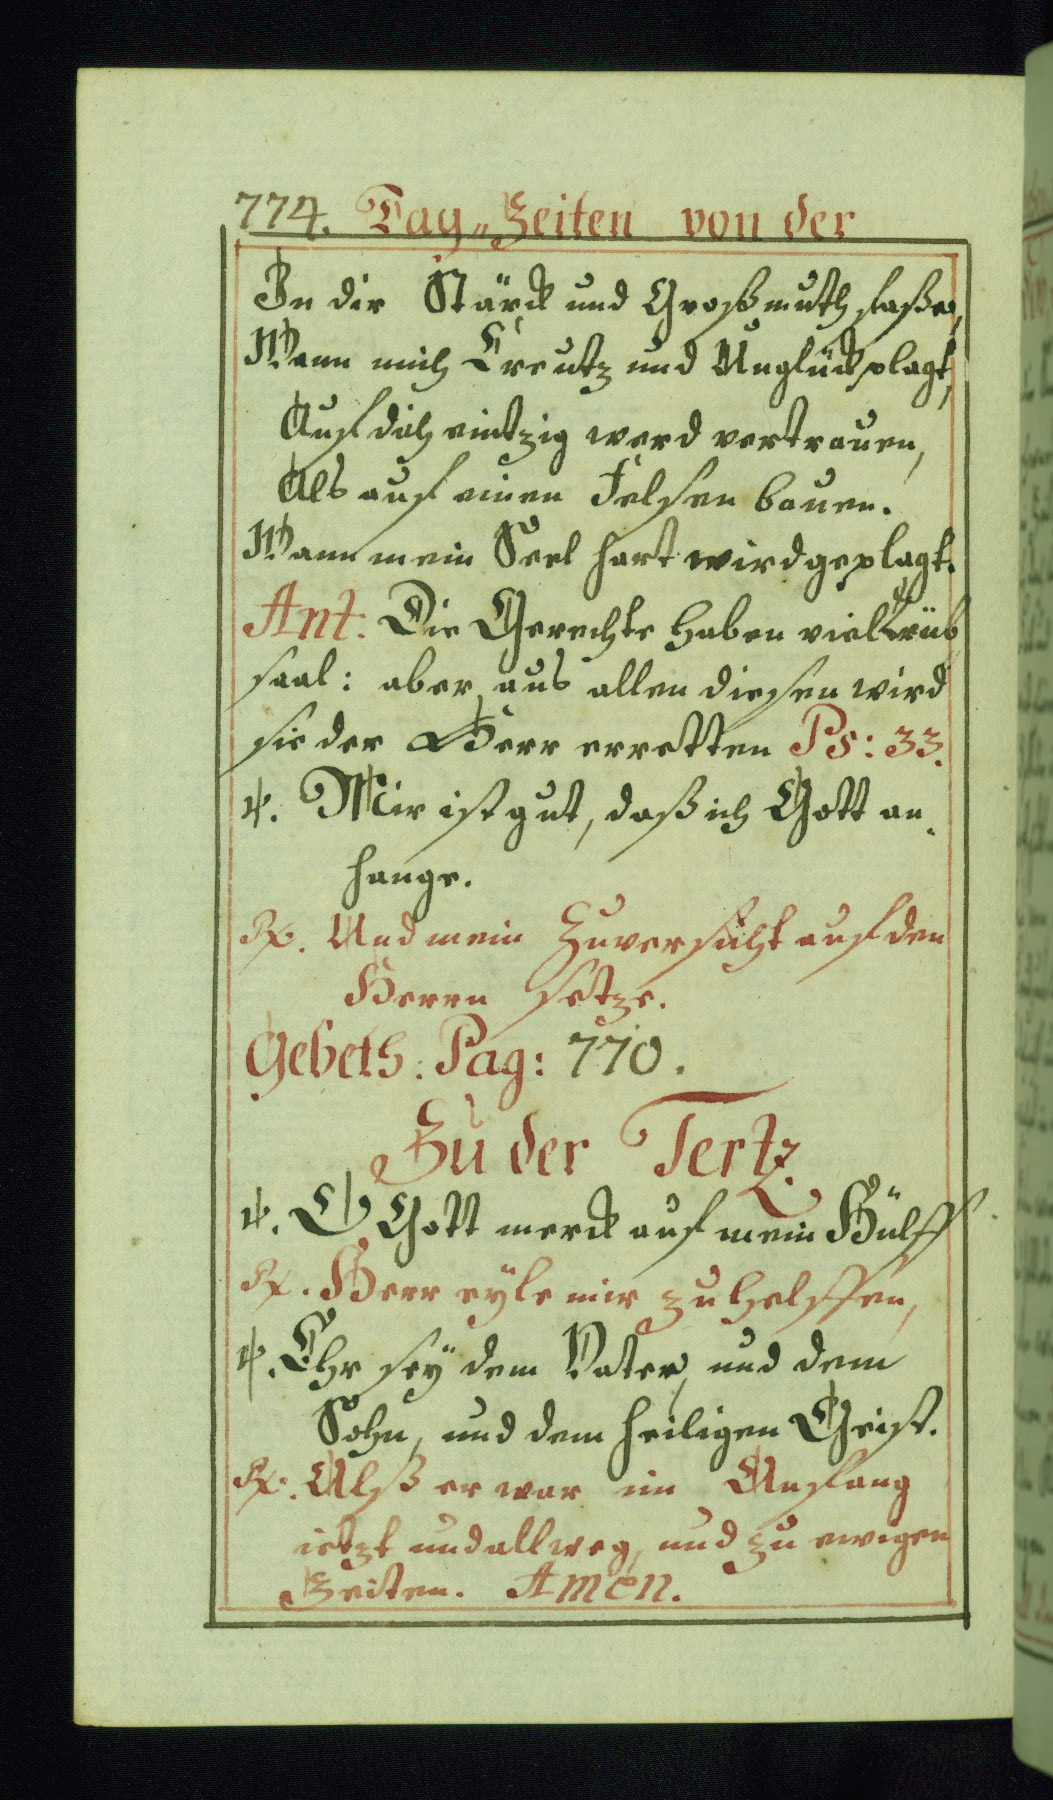 774. Tag„Zeiten von der
In dir Stärck und Großmuth fasse,
Wann mich Creutz und Unglück plagt,
Auf dich eintzig werd vertrauen,
Als auf einen Felsen bauen.
Wann mein Seel hart wird geplagt.
Ant: Die Gerechte haben viel Trüb
saal: aber aus allen diesen wird
sie der Herr erretten Ps: 33.
℣. Mir ist gut, daß ich Gott an„
hange.
℟. Und mein Zuversicht auf den
Herrn setze.
Gebeth: Pag: 770.
Zu der Tertz.
℣. O Gott merck auf mein Hülff
℟. Herr eÿle mir zu helffen,
℣. Ehr seÿ dem Vater, und dem
Sohn, und dem heiligen Geist.
℟. Alß er war im Anfang
ietzt und allweg, und zu ewigen
Zeiten. Amen.